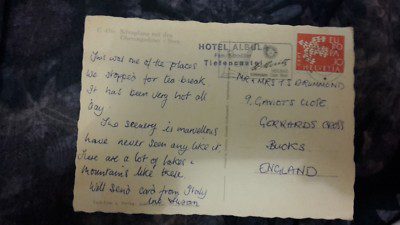 HOTEL ALBULA
Tiefencastel
This was one of the places
we stopped for tea break
It has been very hot all
day.
The scenery is marvellous
have never seen any like it
There are a lot of lakes &
mountains like these.
Will send card from Italy
love
MR & MRS F J DRUMMOND
9, GAVIOTS CLOSE
GERRARDS CROSS
BUCKS
ENGLAND
EU
RO
PA
10
HELVETIA